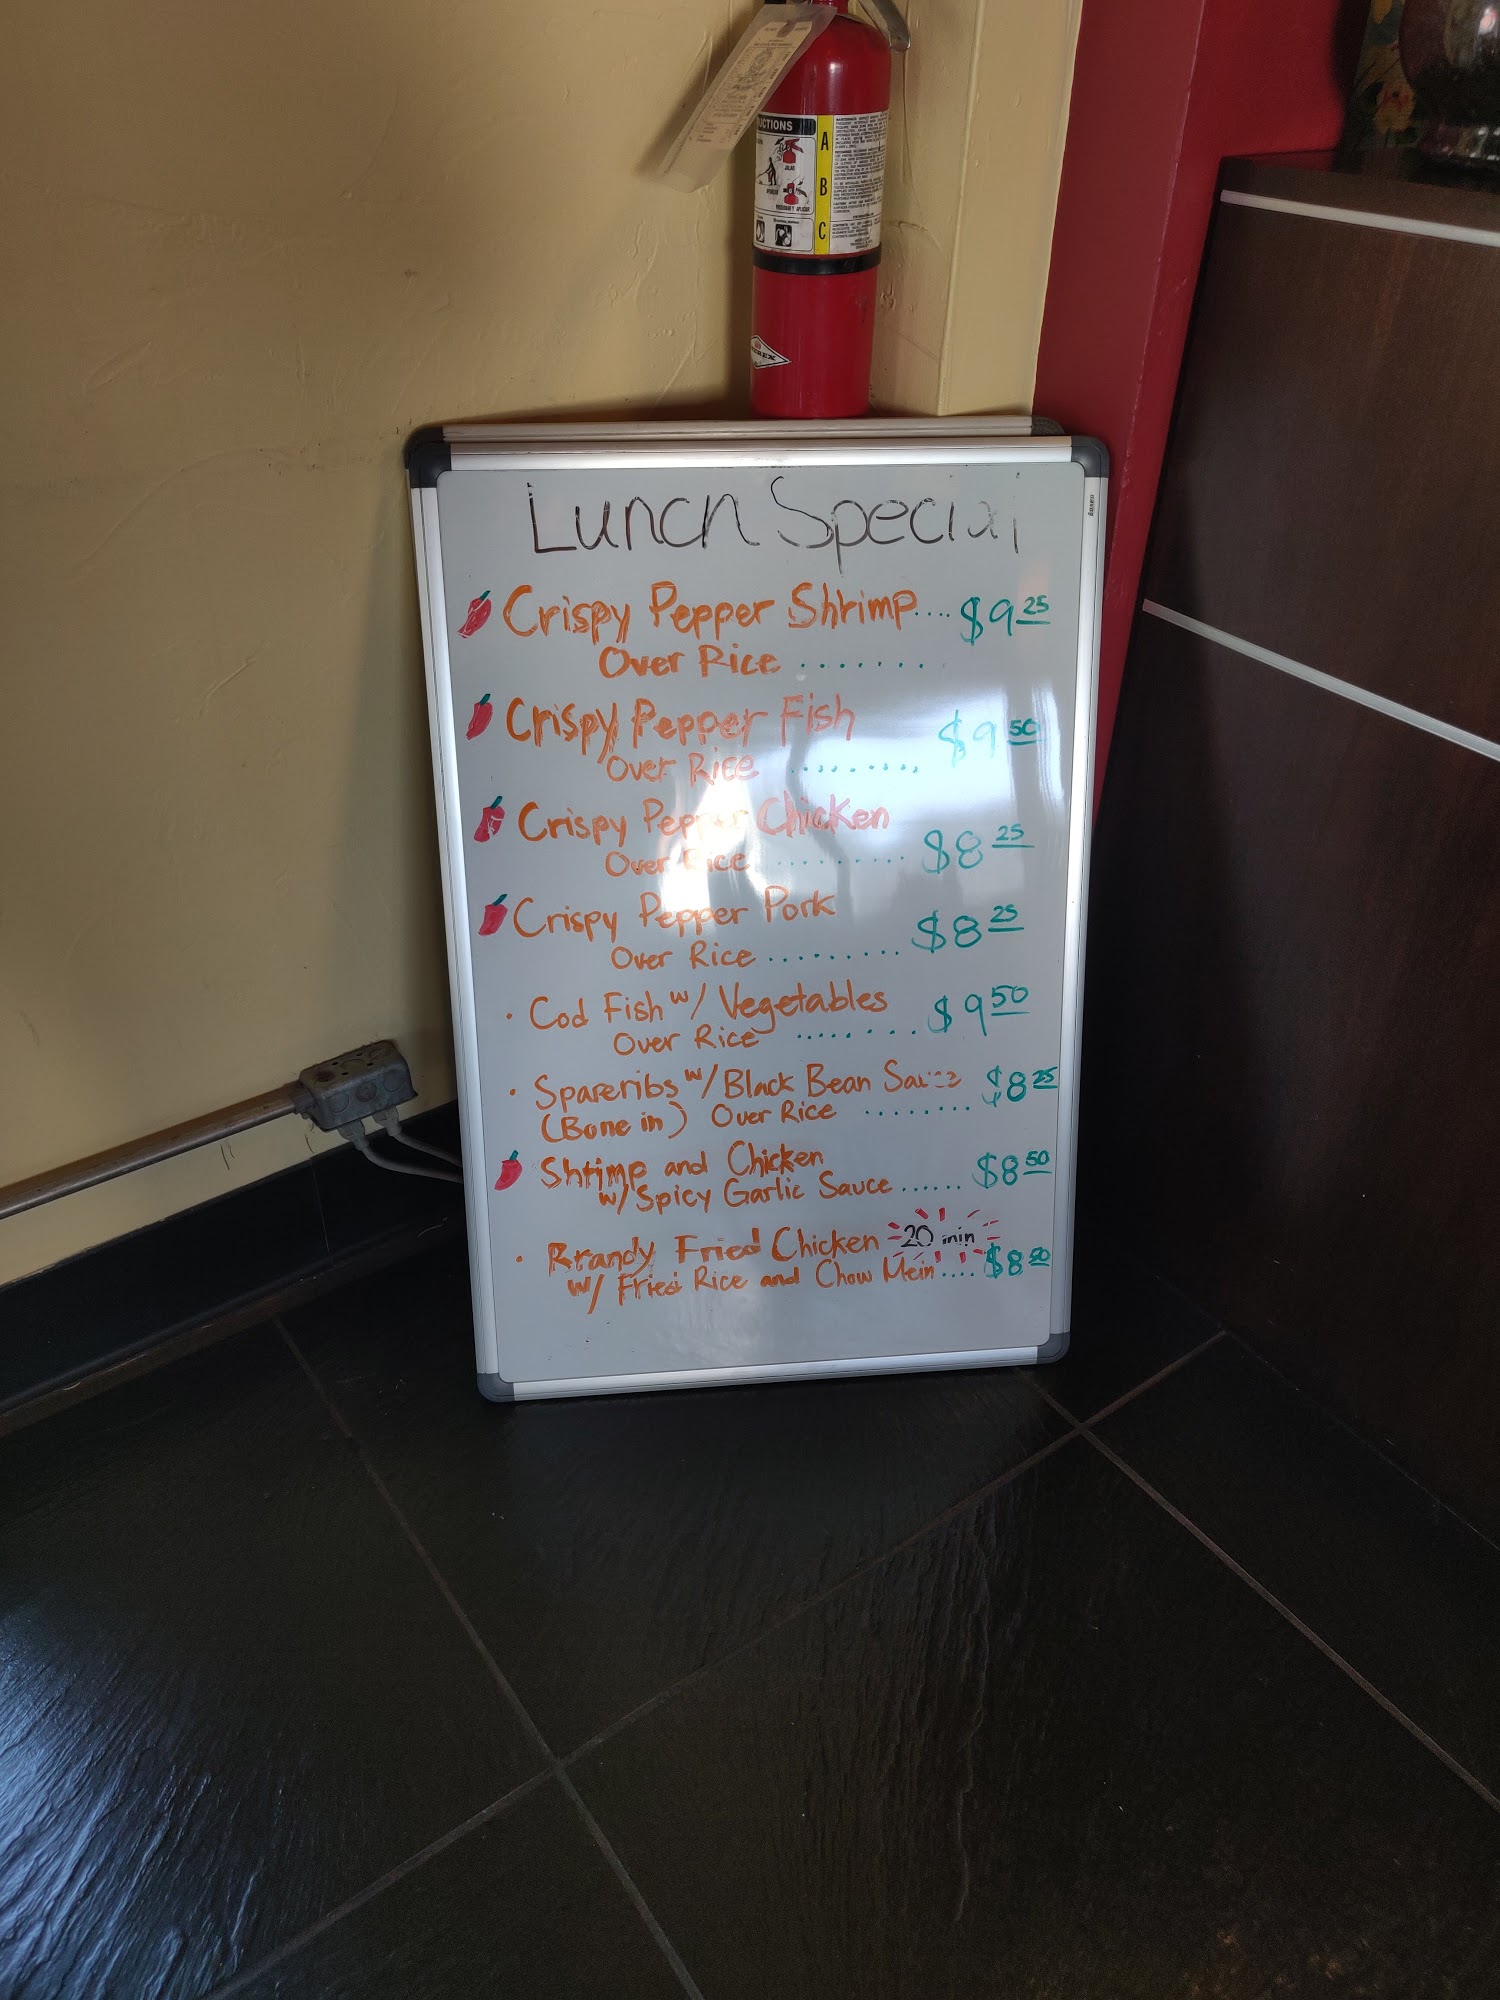 UCTIONS
A
B
C
JALAR
Lunch Special
Crispy Pepper Shrimp.... $9 25
Over Rice .......
Crispy Pepper Fish
Over Rice ........ $9 50
Crispy Pepper Chicken
Over Rice ......... $8 25
Crispy Pepper Pork
Over Rice ......... $8 25
· Cod Fish w/ Vegetables $9 50
Over Rice ........
· Spareribs w/ Black Bean Sauce $8 25
(Bone in) Over Rice ........
Shrimp and Chicken $8 50
w/ Spicy Garlic Sauce......
· Brandy Fried Chicken 20 min
w/ Fried Rice and Chow Mein.... $8 50